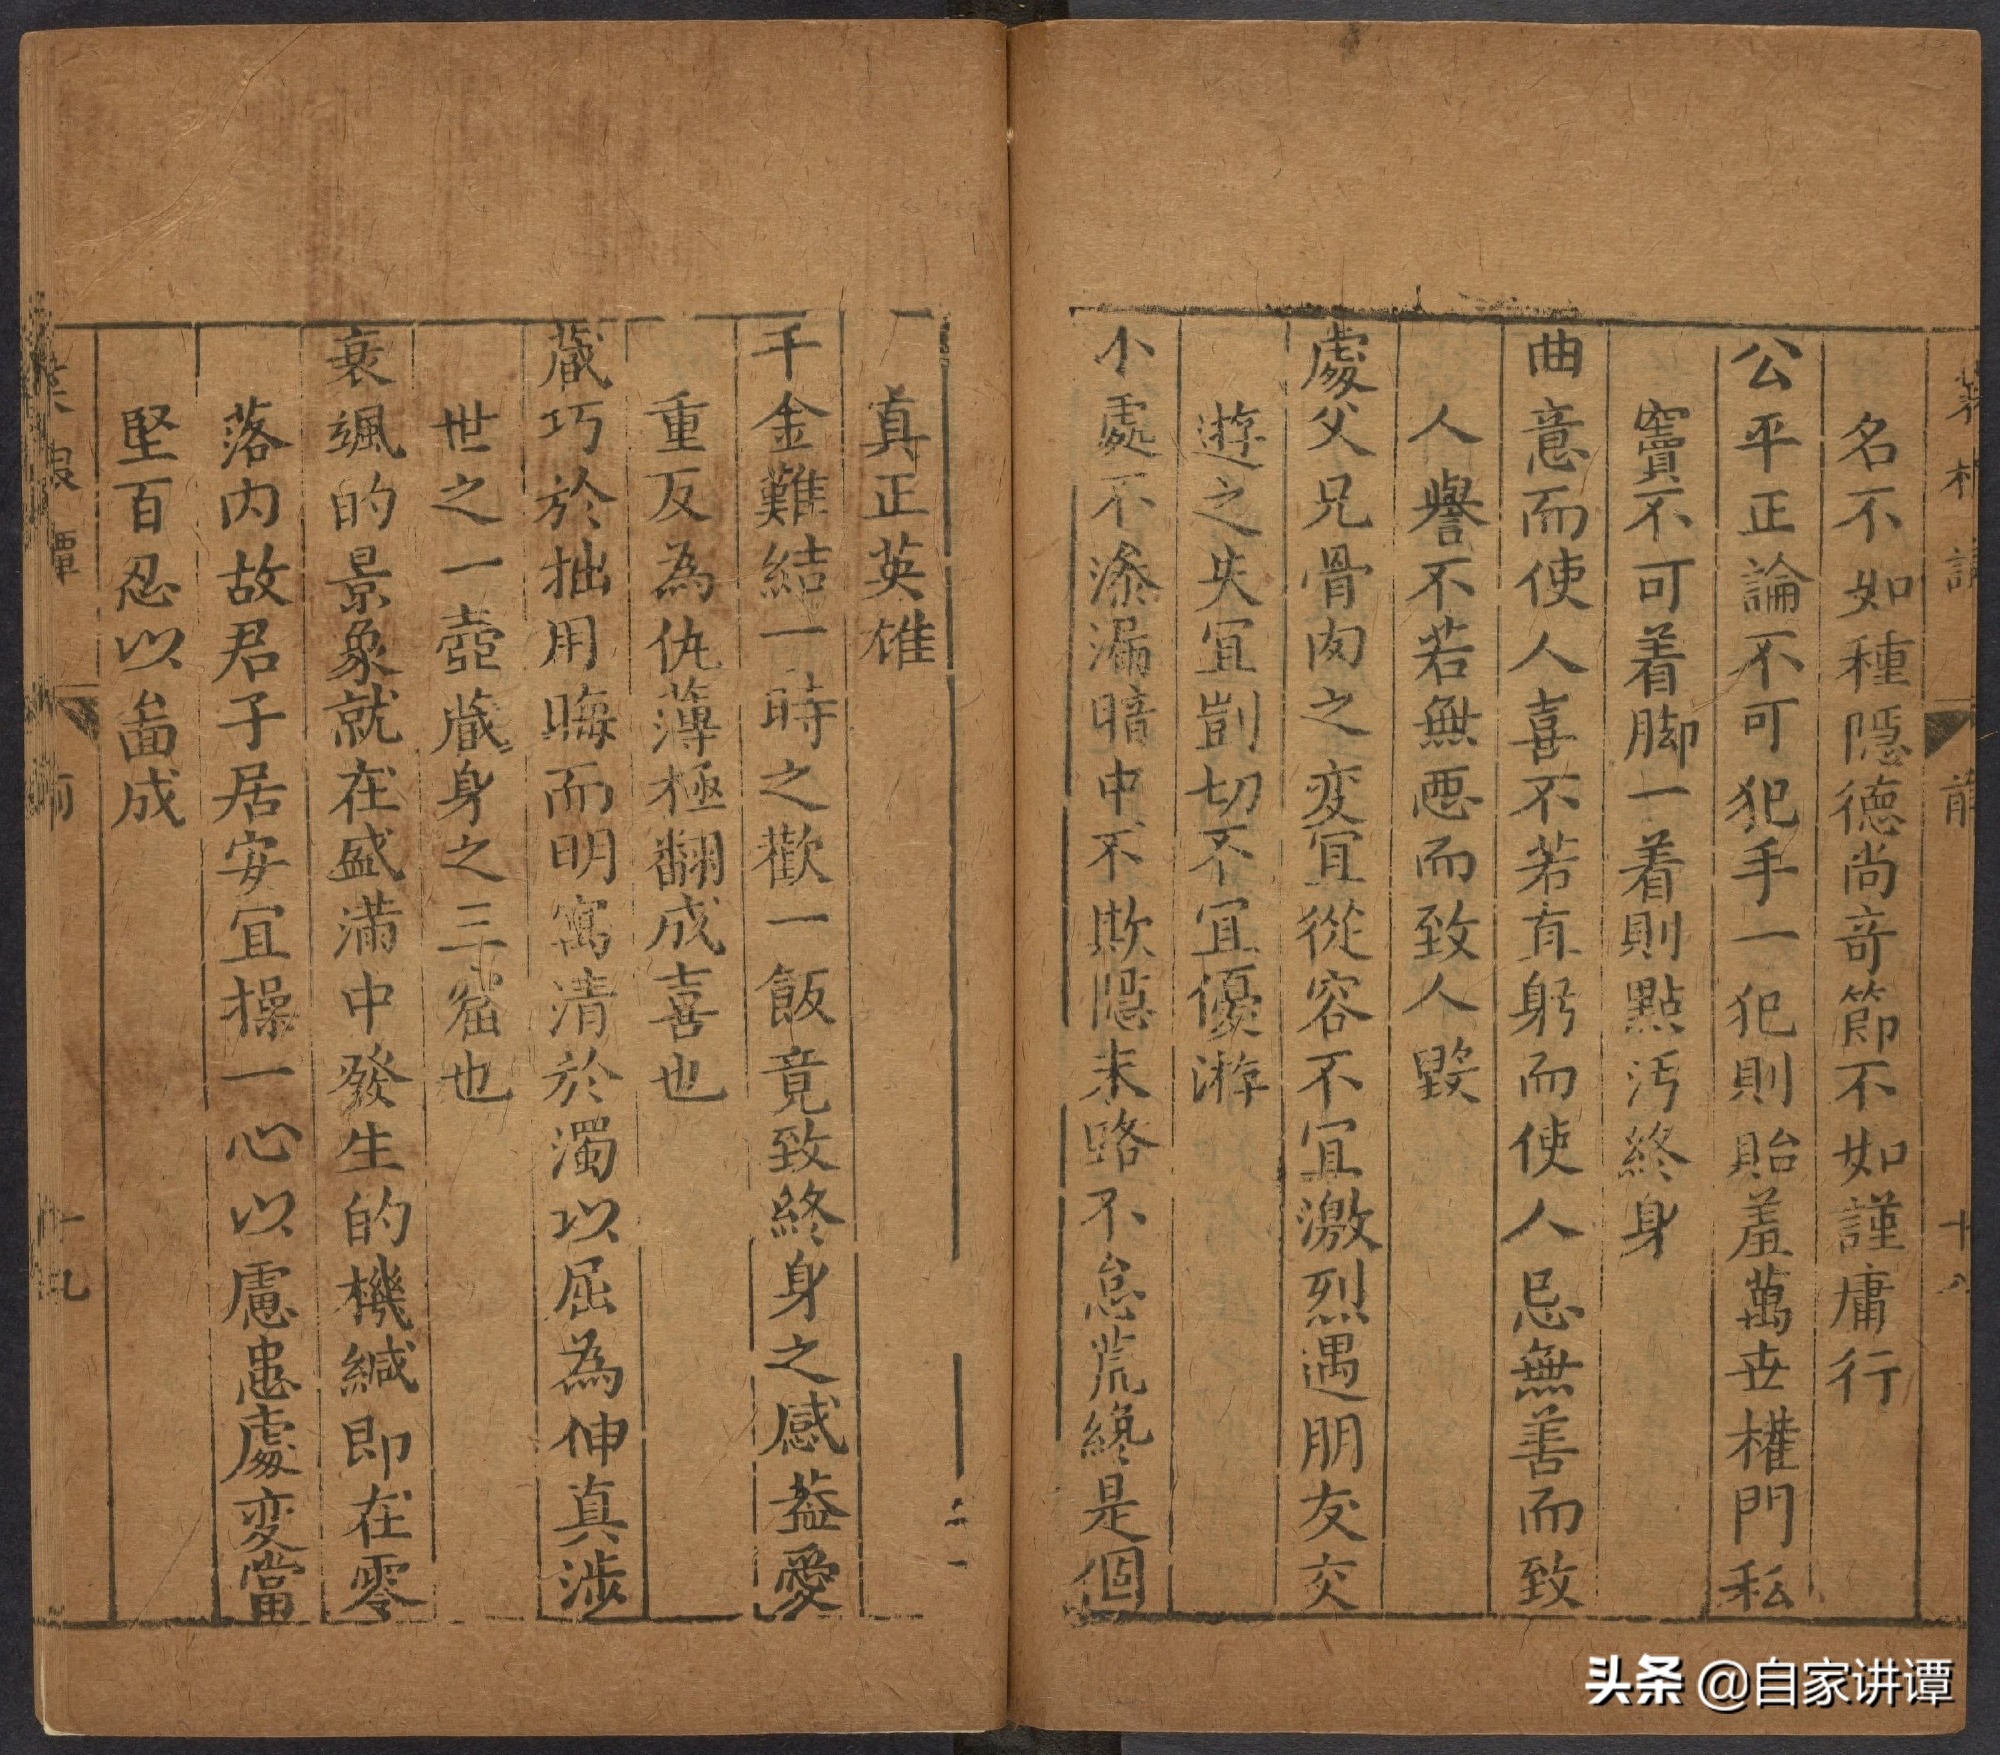 名不如種隱德尚竒節不如謹庸行
公平正論不可犯手一犯則貽羞萬世權門私
竇不可着脚一着則點汚終身
曲意而使人喜不若直躬而使人忌無善而致
人譽不若無惡而致人毀
處父兄骨肉之变宜從容不宜激烈遇朋友交
遊之失宜剴切不宜優游
小處不滲漏暗中不欺隱末路不怠荒纔是個
真正英雄
千金難結一時之歡一飯竟致終身之感葢愛
重反為仇薄極翻成喜也
藏巧於拙用晦而明寓清於濁以屈為伸真涉
世之一壺藏身之三窟也
衰颯的景象就在盛滿中發生的機緘即在零
落内故君子居安宜操一心以慮患處变當
堅百忍以啚成
前
十八
十九
头条 @自家讲谭